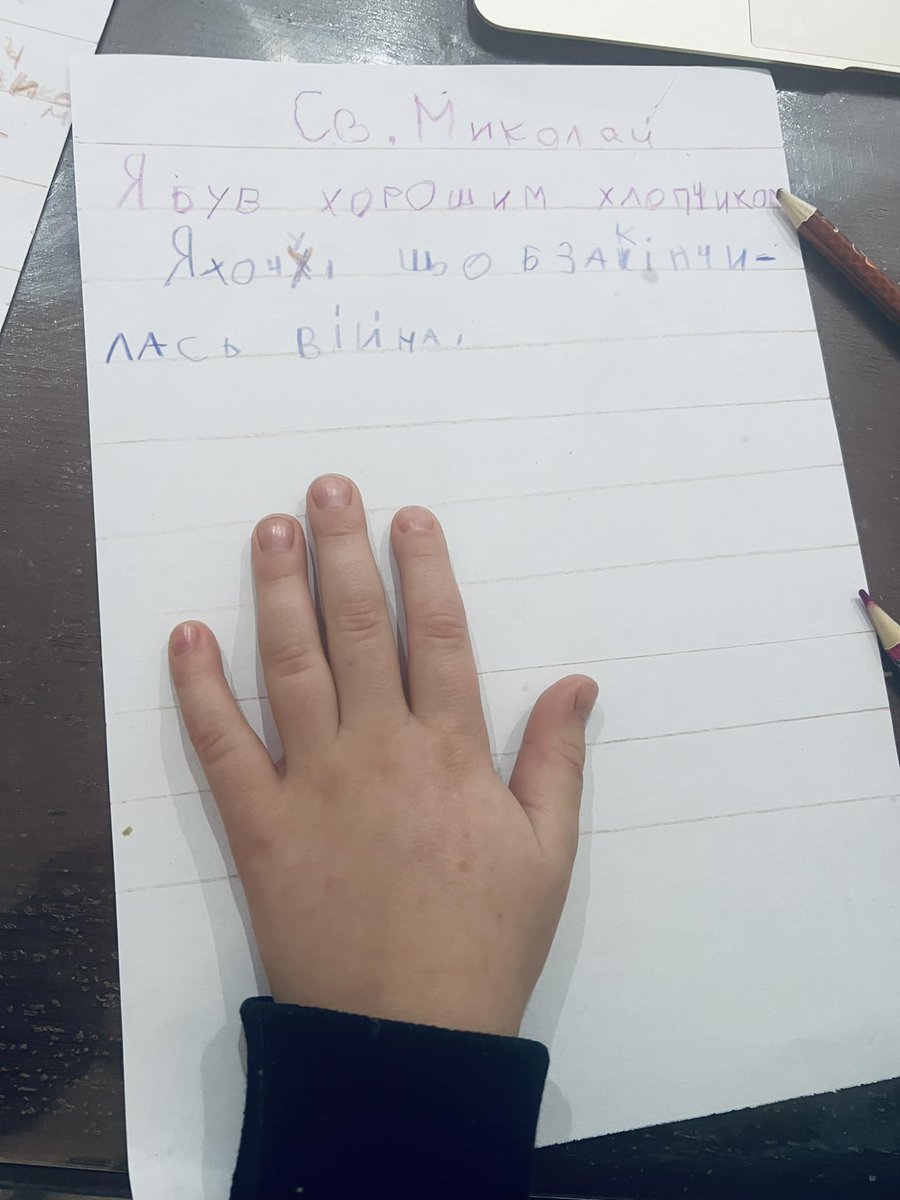 Св. Миколай
Я був хорошим хлопчиком
Я хочу, що б закінчи-
лась війна.